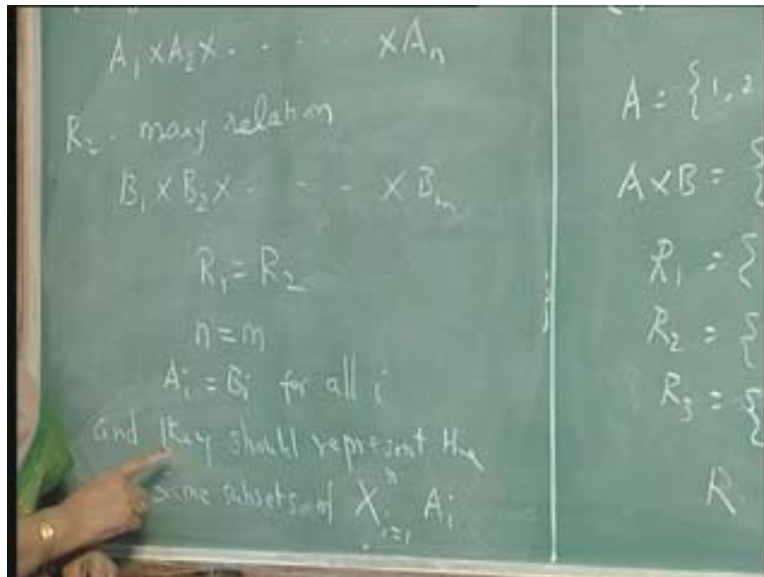 A₁ X A₂ X · · · · · X Aₙ
R₂ · mary relation
B₁ X B₂ X · · · · X Bₘ
R₁ = R₂
n = m
Aᵢ = Bᵢ for all i
and they should represent the
same subsets of X ⁿ ᵢ₌₁ Aᵢ
A = {1, 2
A X B = {
R₁ = {
R₂ = {
R₃ = {
R